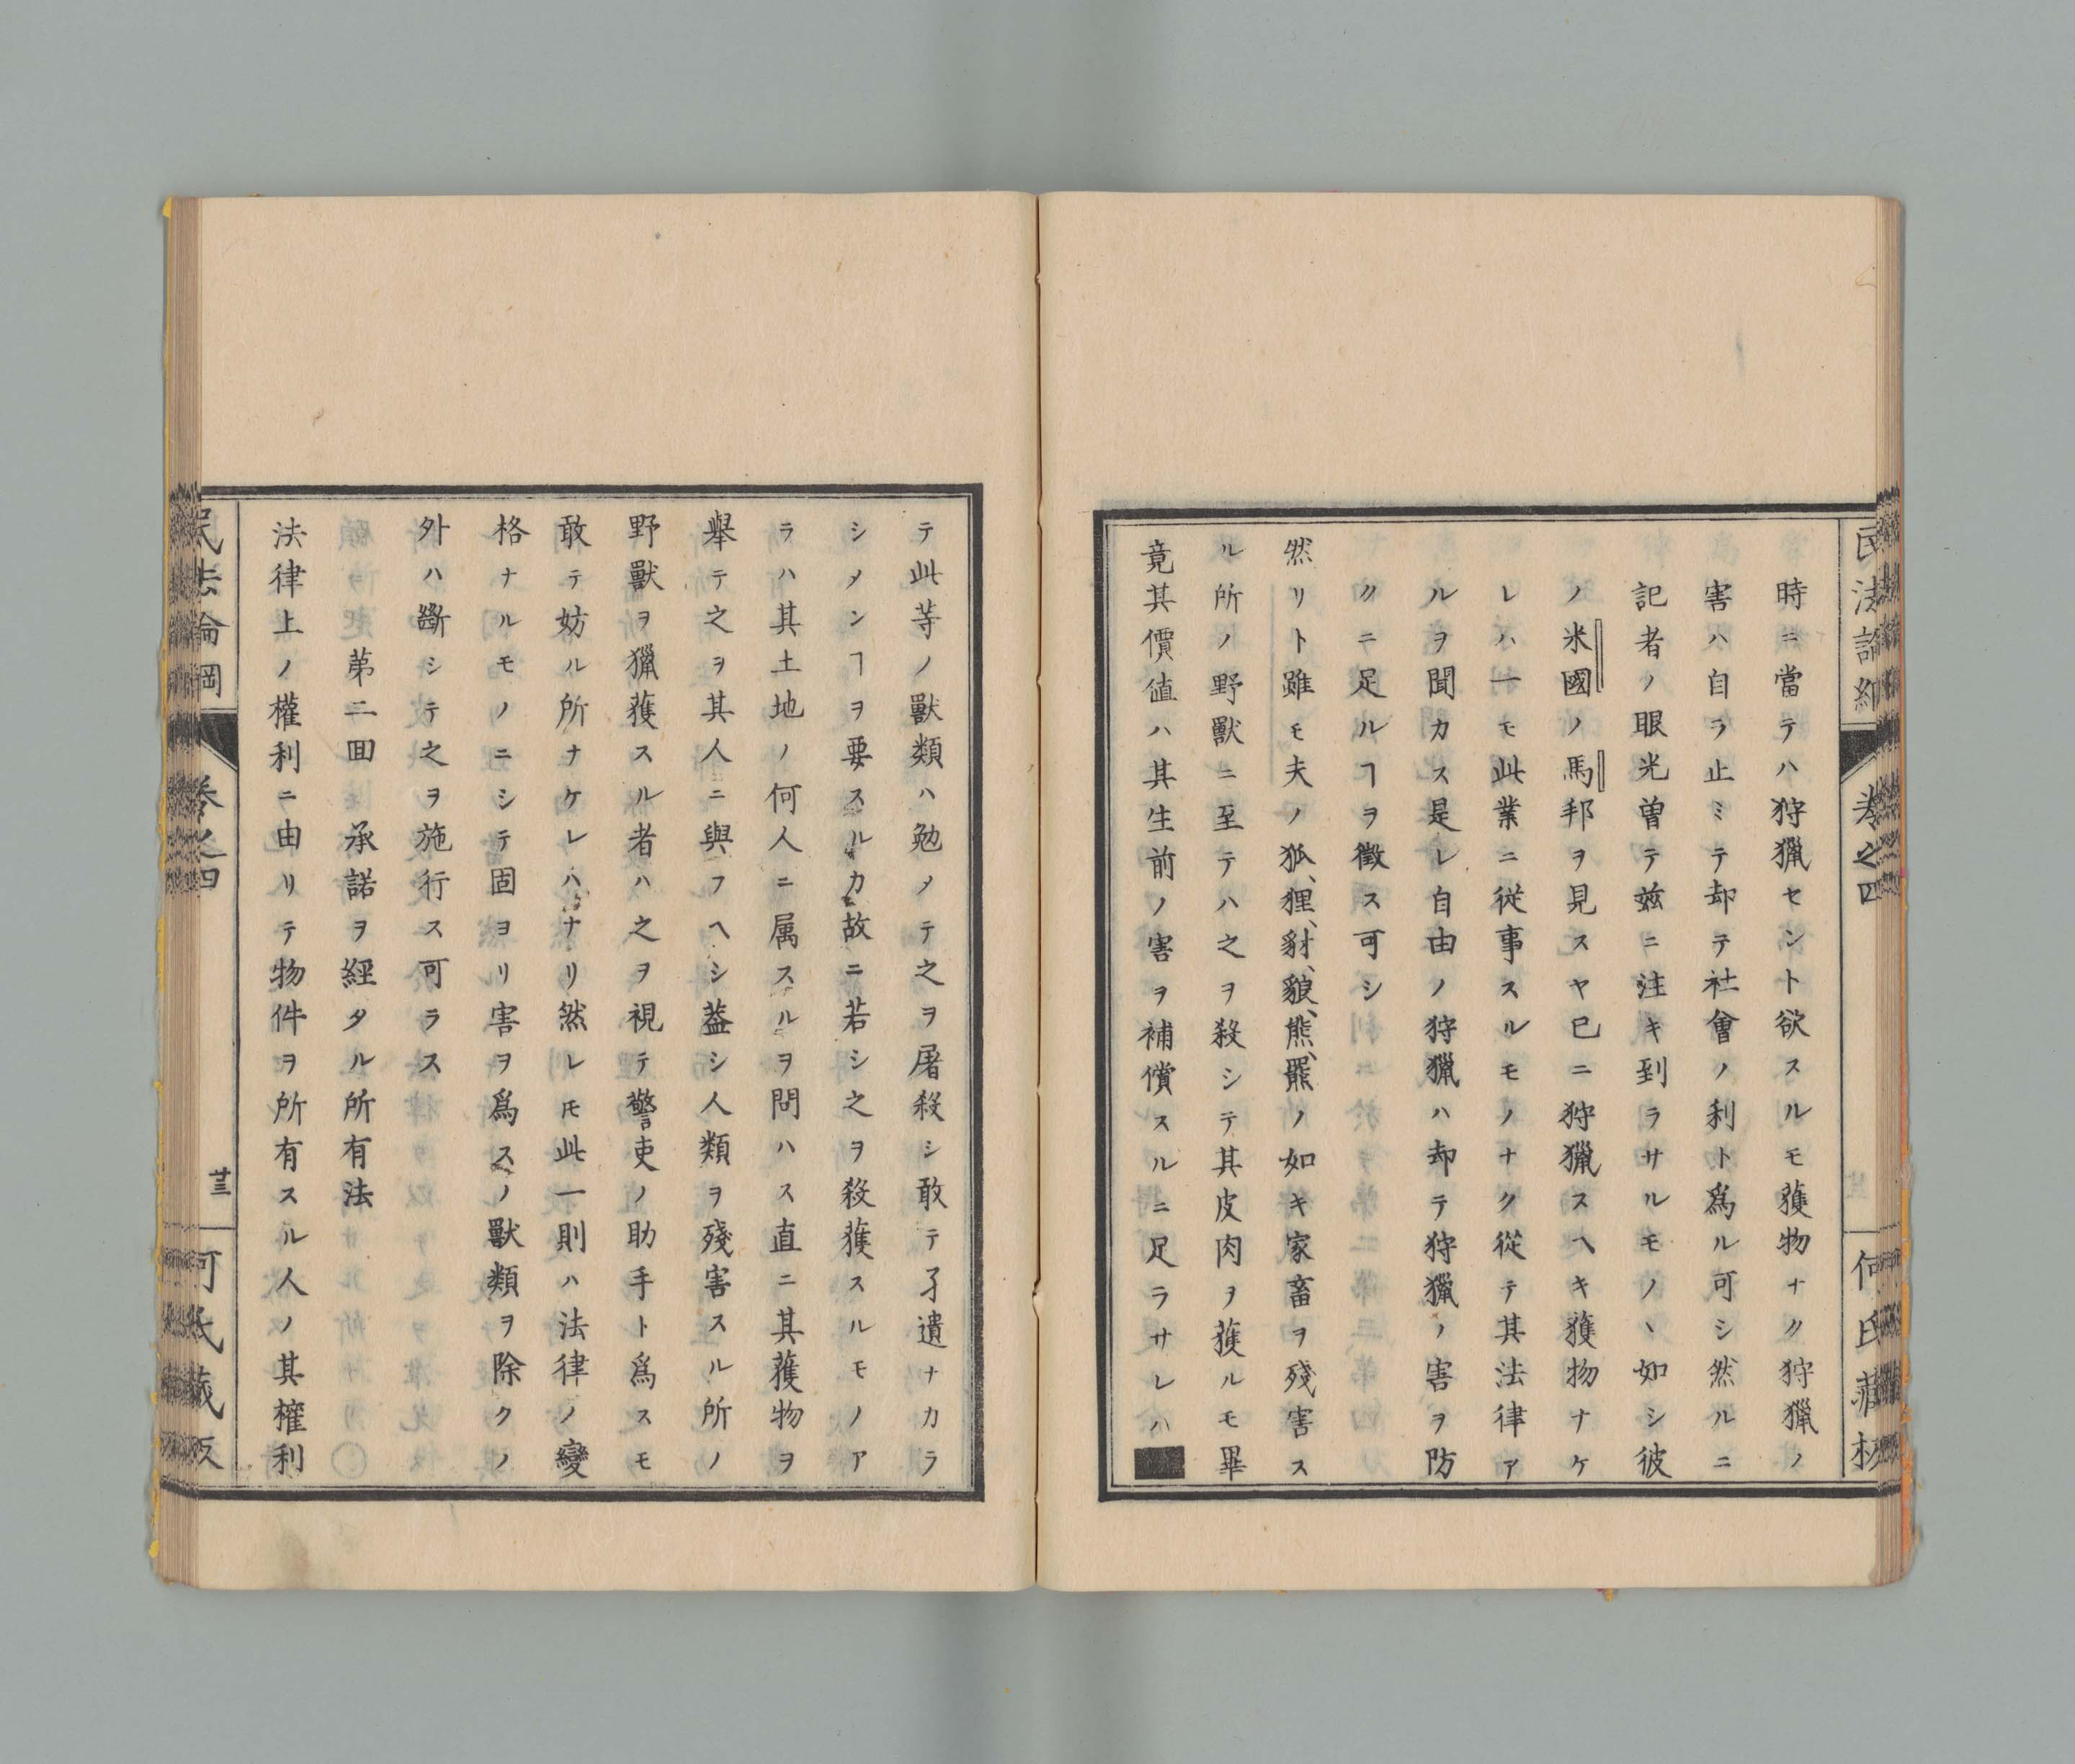 民法論綱
卷之四
何氏藏板
時ニ當テハ狩獵セント欲スルモ獲物ナク狩獵ノ
害ハ自ラ止ミテ却テ社會ノ利ト爲ル可シ然ルニ
記者ノ眼光曽テ玆ニ注キ到ラサルモノヽ如シ彼
ノ米國ノ馬邦ヲ見スヤ已ニ狩獵スヘキ獲物ナケ
レハ一モ此業ニ從事スルモノナク從テ其法律ア
ルヲ聞カス是レ自由ノ狩獵ハ却テ狩獵ノ害ヲ防
クニ足ルヿヲ徴ス可シ
然リト雖モ夫ノ狐、狸、豺、狼、熊、羆ノ如キ家畜ヲ殘害ス
ル所ノ野獸ニ至テハ之ヲ殺シテ其皮肉ヲ獲ルモ畢
竟其價値ハ其生前ノ害ヲ補償スルニ足ラサレハ
テ此等ノ獸類ハ勉メテ之ヲ屠殺シ敢テ孑遺ナカラ
シメンヿヲ要スルカ故ニ若シ之ヲ殺獲スルモノア
ラハ其土地ノ何人ニ属スルヲ問ハス直ニ其獲物ヲ
擧テ之ヲ其人ニ與フヘシ葢シ人類ヲ殘害スル所ノ
野獸ヲ獵獲スル者ハ之ヲ視テ警吏ノ助手ト爲スモ
敢テ妨ル所ナケレハナリ然レ𪜈此一則ハ法律ノ變
格ナルモノニシテ固ヨリ害ヲ爲スノ獸類ヲ除クノ
外ハ斷シテ之ヲ施行ス可ラス
第二回 承諾ヲ經タル所有法
法律上ノ權利ニ由リテ物件ヲ所有スル人ノ其權利
民法論綱
卷之四
廿三
何氏藏版